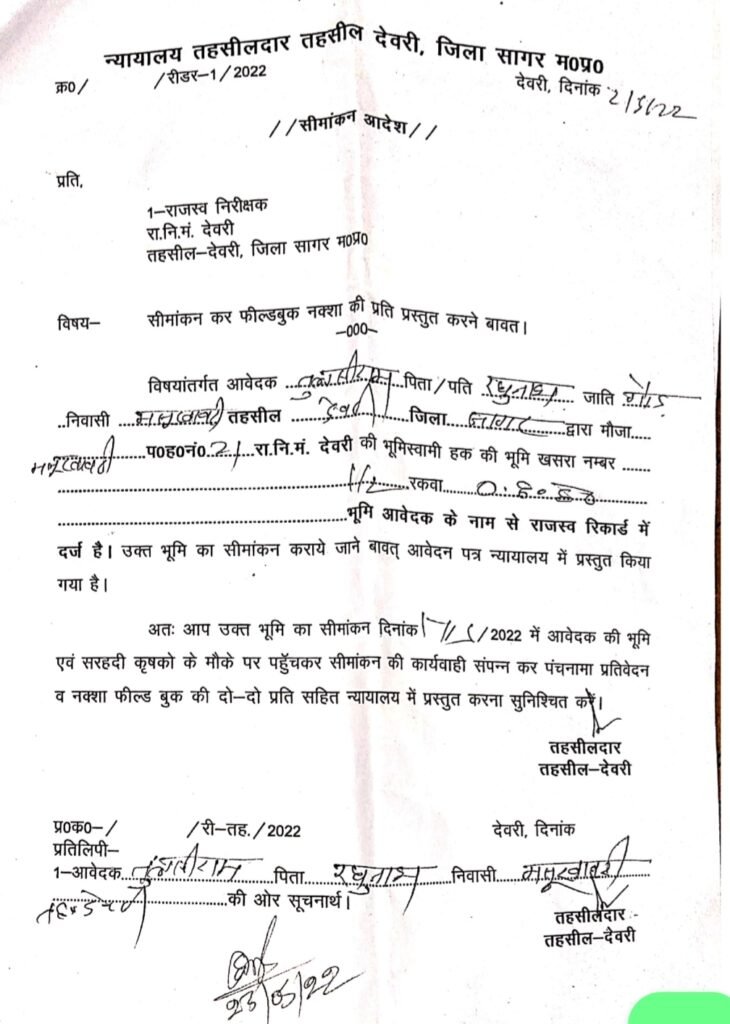 न्यायालय तहसीलदार तहसील देवरी, जिला सागर म0प्र0
क्र0/ /रीडर–1/2022 देवरी, दिनांक 2/5/22
//सीमांकन आदेश//
प्रति,
1–राजस्व निरीक्षक
रा.नि.मं. देवरी
तहसील–देवरी, जिला सागर म0प्र0
विषय– सीमांकन कर फील्डबुक नक्शा की प्रति प्रस्तुत करने बावत।
–000–
विषयांतर्गत आवेदक ...तुलसीराम...पिता/पति रघुनाथ जाति गौड
..निवासी तहसील देवरी जिला सागर द्वारा मौजा.....
प0ह0नं0.21 रा.नि.मं. देवरी की भूमिस्वामी हक की भूमि खसरा नम्बर ......
112 रकवा
भूमि आवेदक के नाम से राजस्व रिकार्ड में
दर्ज है। उक्त भूमि का सीमांकन कराये जाने बावत् आवेदन पत्र न्यायालय में प्रस्तुत किया
गया है।
अतः आप उक्त भूमि का सीमांकन दिनांक /2022 में आवेदक की भूमि
एवं सरहदी कृषको के मौके पर पहुँचकर सीमांकन की कार्यवाही संपन्न कर पंचनामा प्रतिवेदन
व नक्शा फील्ड बुक की दो–दो प्रति सहित न्यायालय में प्रस्तुत करना सुनिश्चित करें।
तहसीलदार
तहसील–देवरी
प्र0क0–/ /री–तह./2022 देवरी, दिनांक
प्रतिलिपी–
1–आवेदक..तुलसीराम पिता रघुनाथ निवासी
तह0 देवरी की ओर सूचनार्थ।
तहसीलदार
तहसील–देवरी
23/05/22